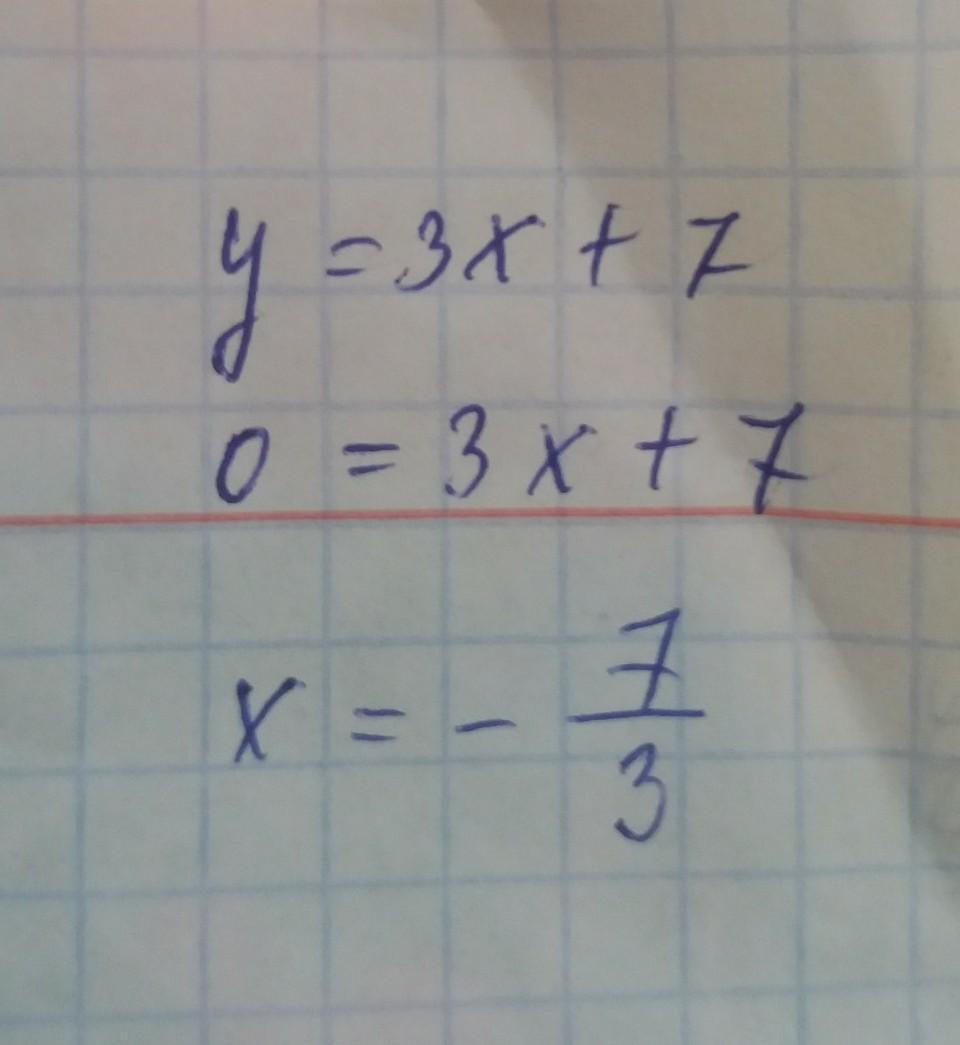 y = 3x + 7
0 = 3x + 7
x = - 7/3